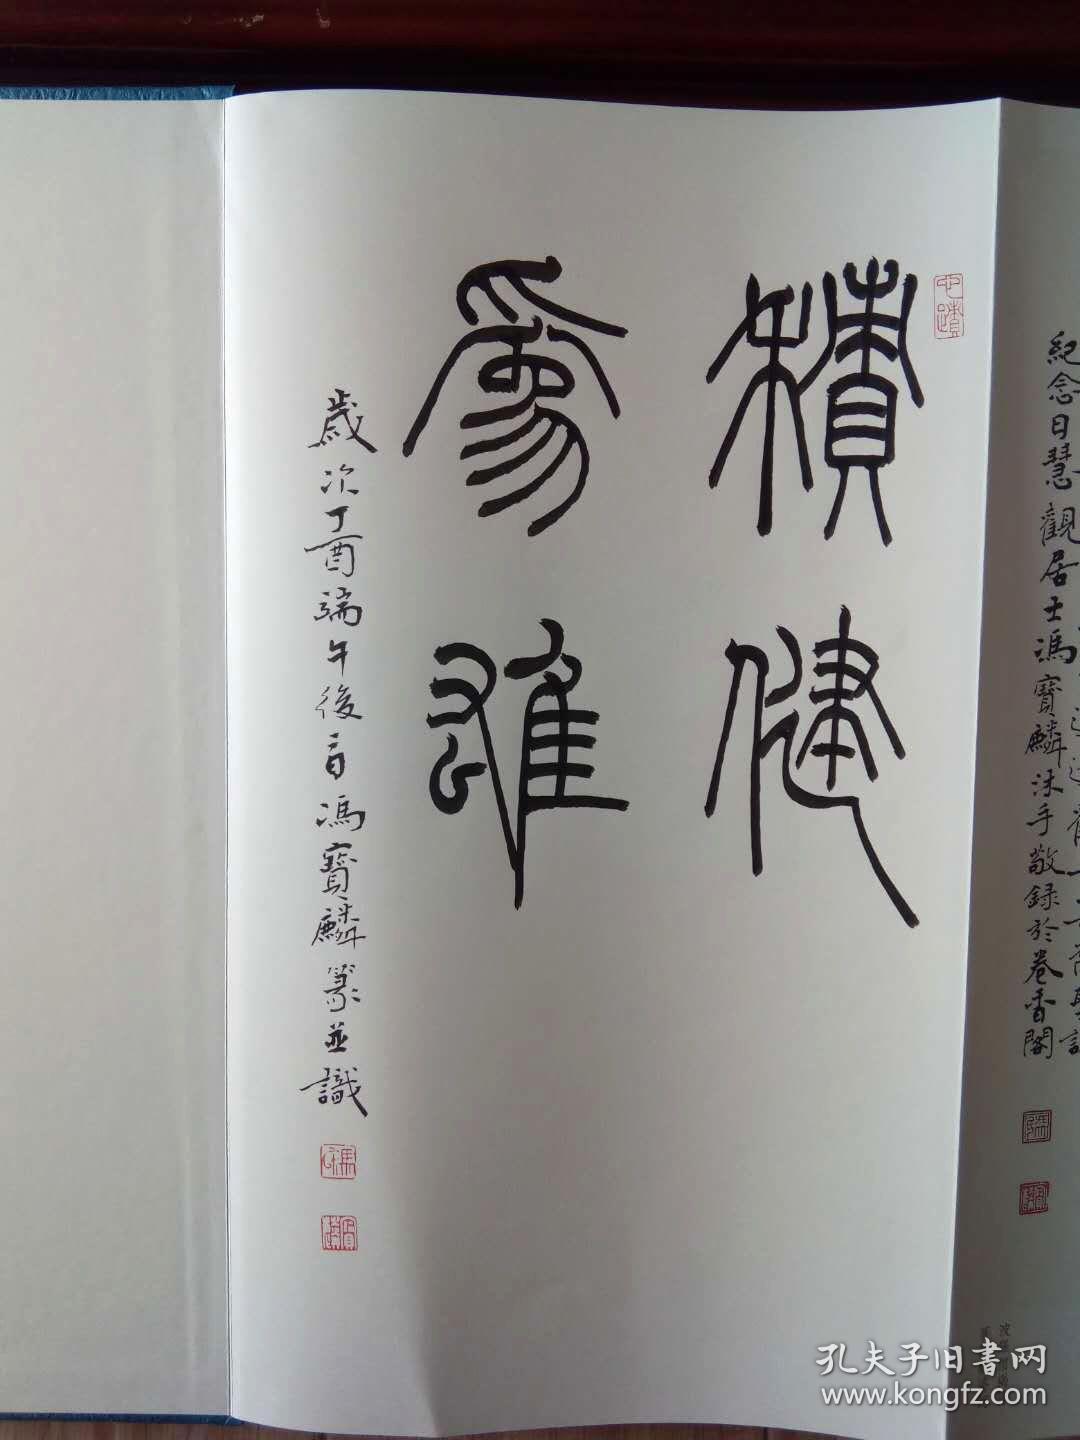 紀念日慧觀居士馮寶麟沐手敬録於卷香閣
積健
爲雄
歲次丁酉端午後一日馮寶麟篆並識
孔夫子旧书网
www.kongfz.com